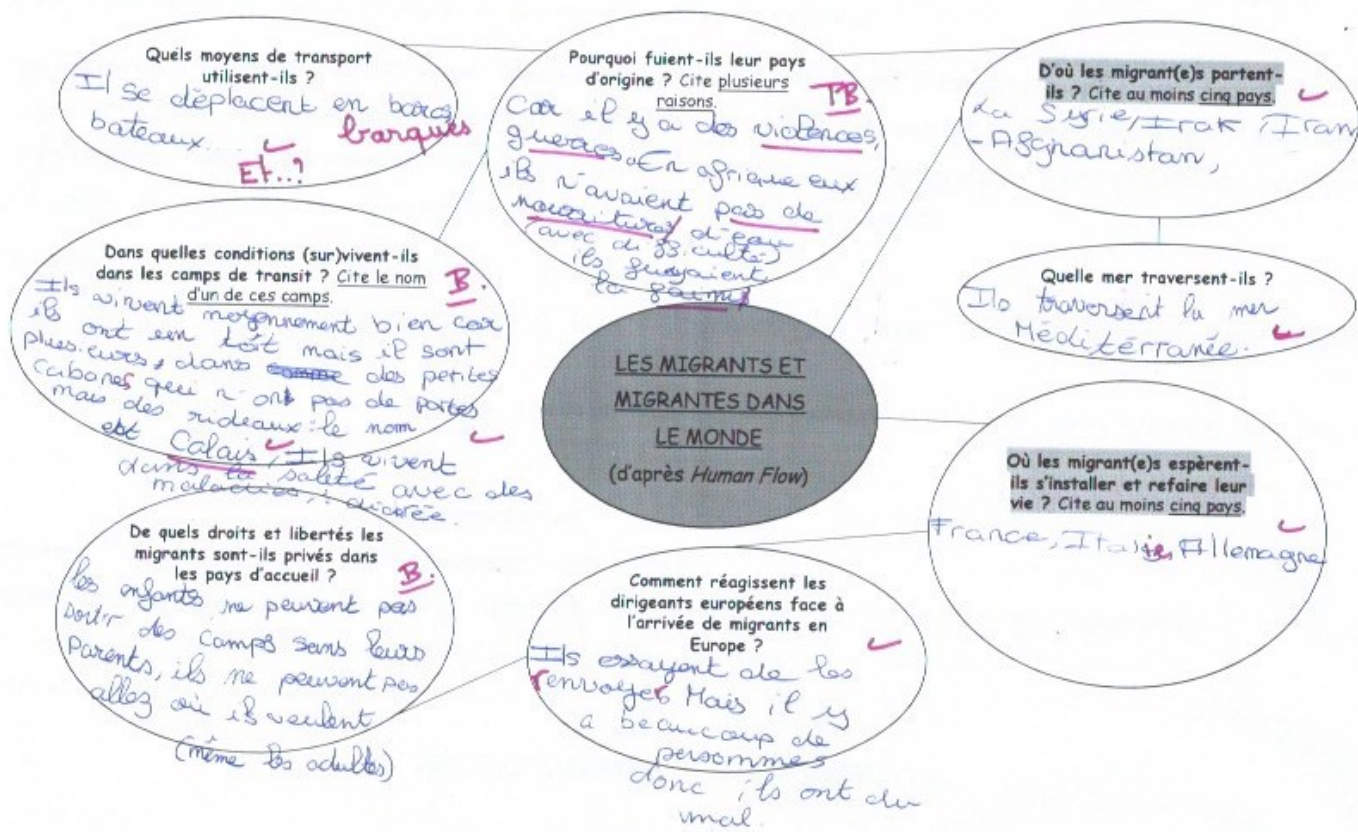 Quels moyens de transport
utilisent-ils ?
Il se déplacent en barcs,
bateaux....
barques
Et..?
Pourquoi fuient-ils leur pays
d'origine ? Cite plusieurs
raisons.
TB.
Car il y a des violences,
guerres. En afrique eux
ils n'avaient pas de
nourriture, d'eau
(avec difficulté)
ils fuyaient
la faim,
D'où les migrant(e)s partent-
ils ? Cite au moins cinq pays.
La Syrie, Irak, Iran
- Afghanistan,
Dans quelles conditions (sur)vivent-ils
dans les camps de transit ? Cite le nom
d'un de ces camps.
B.
Ils vivent moyennement bien car
ils ont un toit mais il sont
plusieurs, dans comme des petites
cabanes qui n'ont pas de portes
mais des rideaux : le nom
est Calais, Ils vivent
dans la saleté avec des
maladies, diarée.
Quelle mer traversent-ils ?
Ils traversent la mer
Méditérranée.
LES MIGRANTS ET
MIGRANTES DANS
LE MONDE
(d'après Human Flow)
Où les migrant(e)s espèrent-
ils s'installer et refaire leur
vie ? Cite au moins cinq pays.
France, Italie, Allemagne
De quels droits et libertés les
migrants sont-ils privés dans
les pays d'accueil ?
B.
les enfants ne peuvent pas
sortir des camps sans leurs
parents, ils ne peuvent pas
allez où ils veulent
(même les adultes)
Comment réagissent les
dirigeants européens face à
l'arrivée de migrants en
Europe ?
Ils essayent de les
renvoyer Mais il y
a beaucoup de
personnes
donc ils ont du
mal.